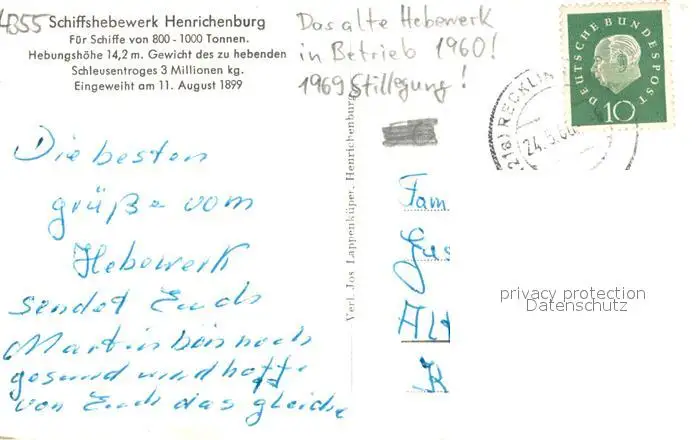 4355 Schiffshebewerk Henrichenburg
Für Schiffe von 800 - 1000 Tonnen.
Hebungshöhe 14,2 m. Gewicht des zu hebenden
Schleusentroges 3 Millionen kg.
Eingeweiht am 11. August 1899
Das alte Hebewerk
in Betrieb 1960!
1969 Stillegung!
DEUTSCHE BUNDESPOST
10
(218) RECKLIN
24.5.60
Die besten
grüße vom
Hebewerk
sendet Euch
Martin bin noch
gesund und hoffe
von Euch das gleiche
Verl. Jos. Lappenküper, Henrichenburg
Fam
Gus
Alt
K
privacy protection
Datenschutz